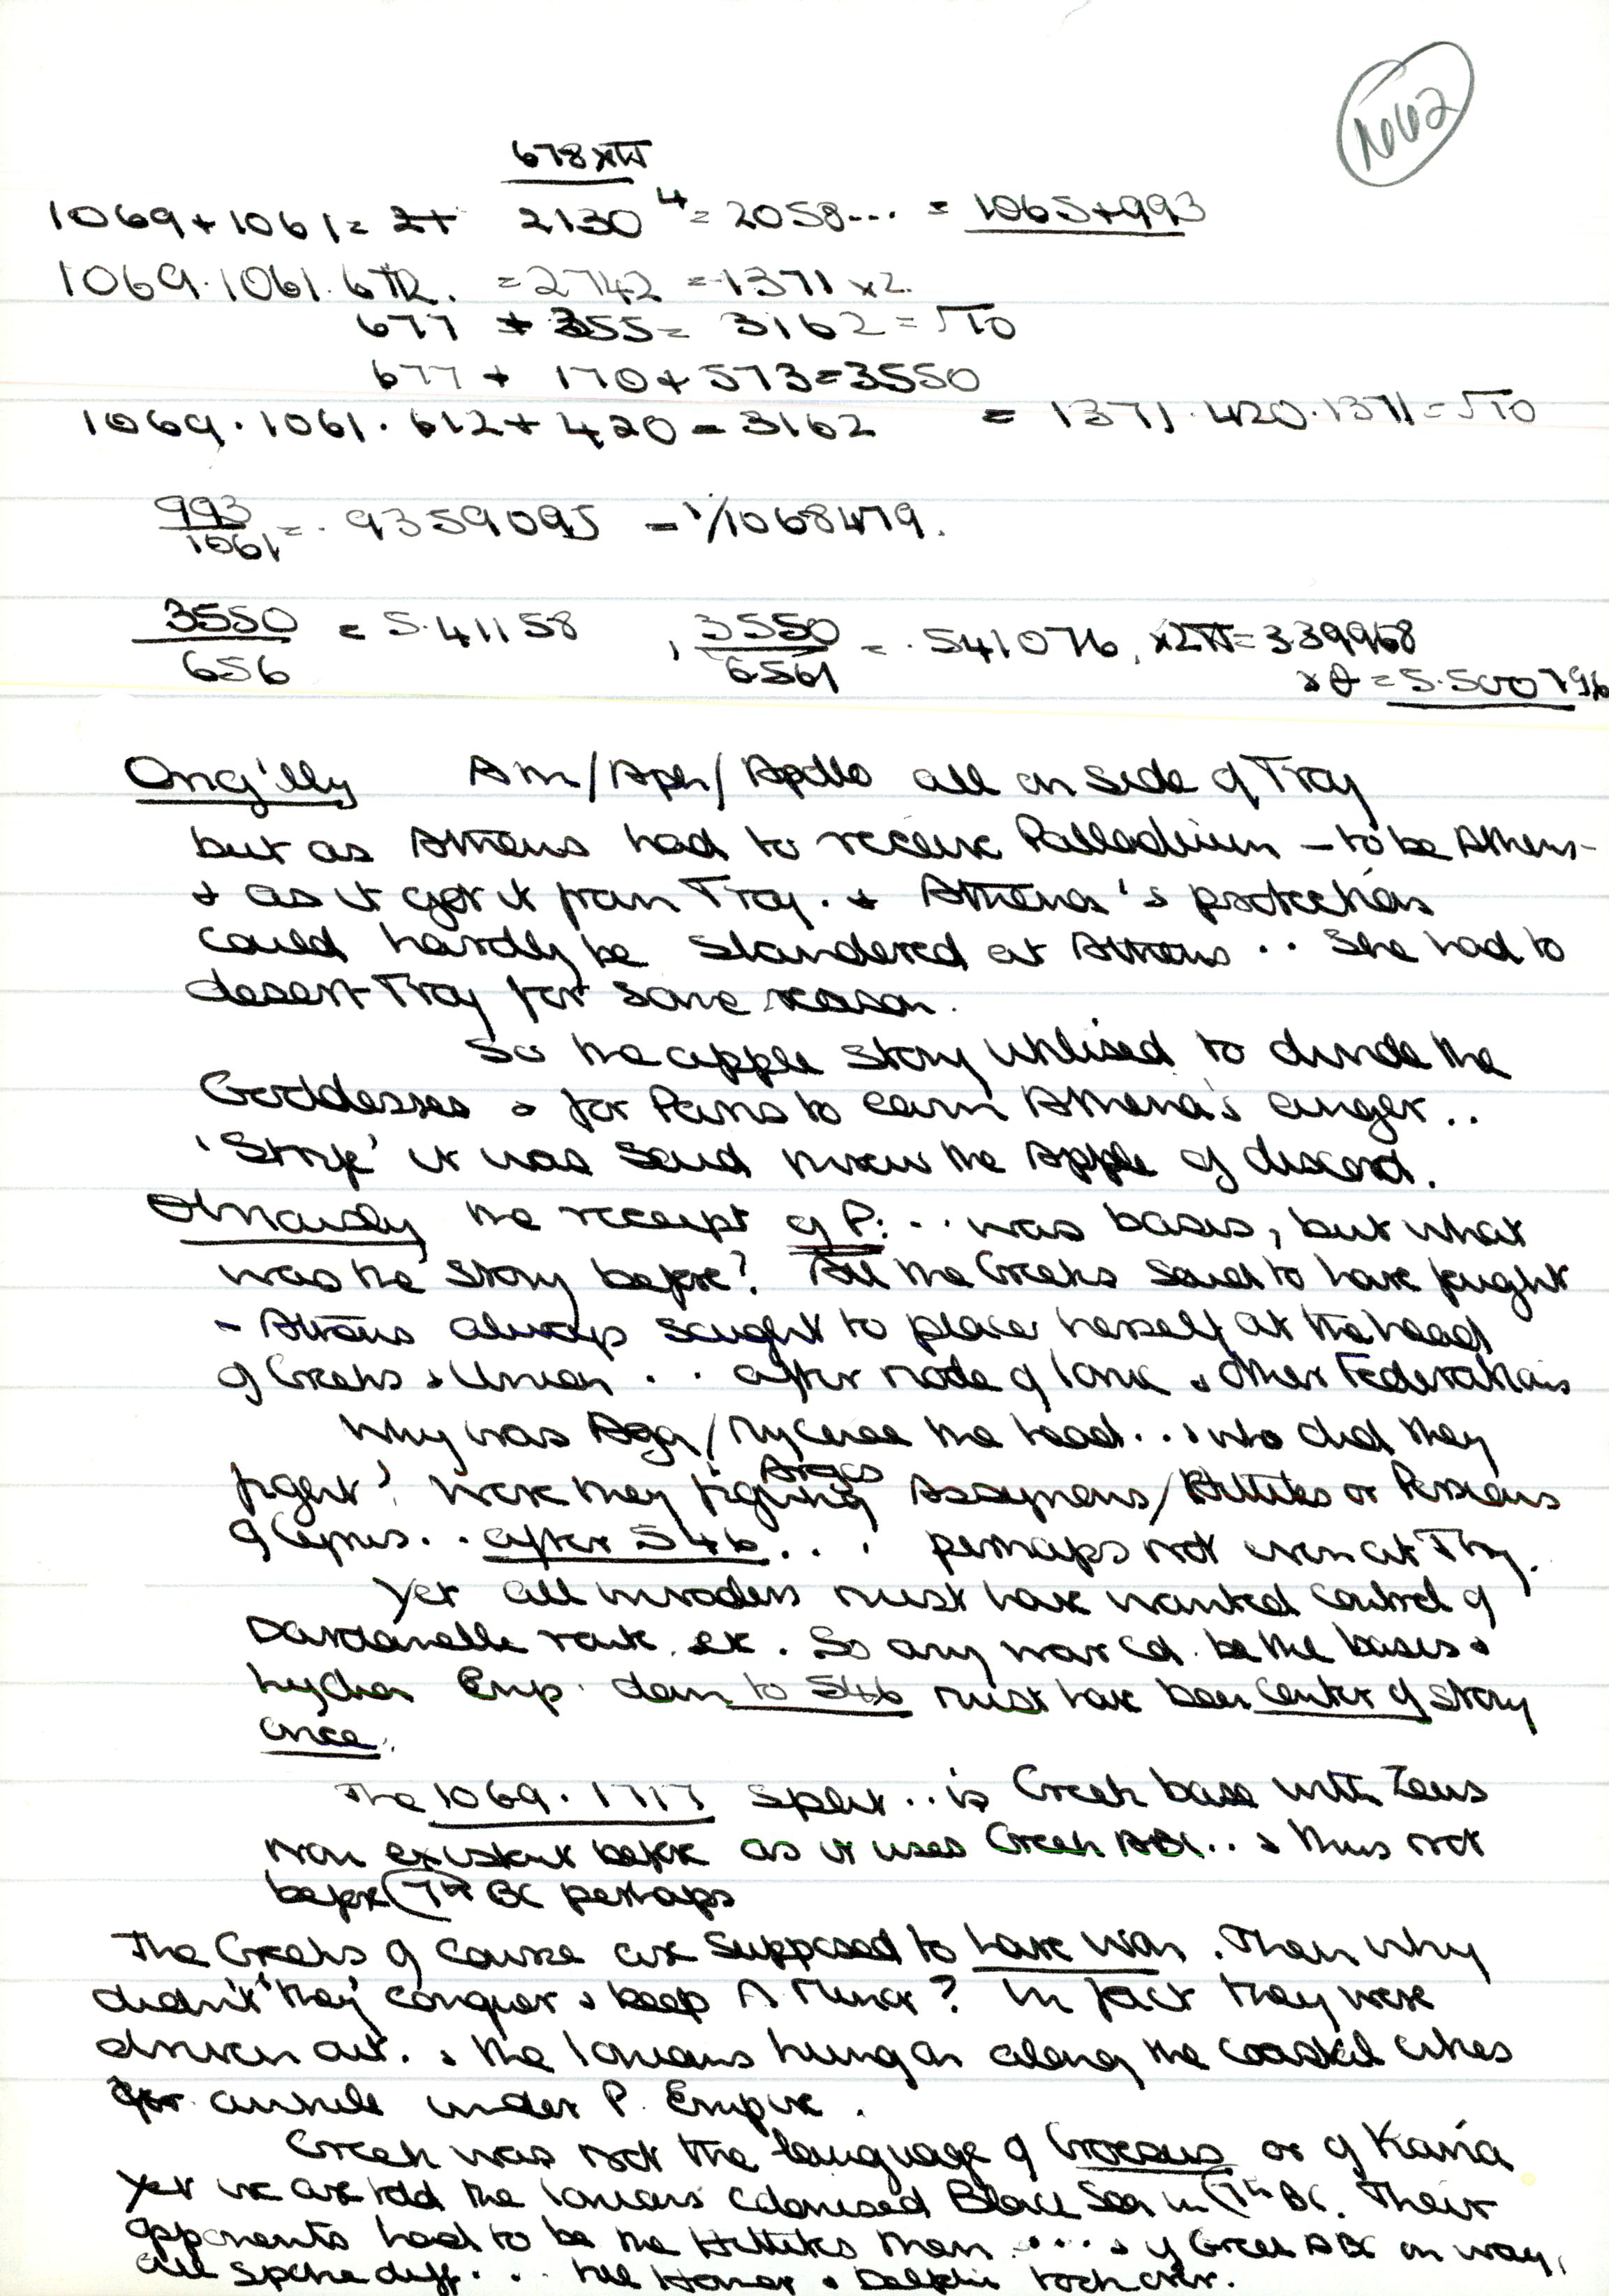 678 x π
1069 + 1061 = 2+ 2130 4 = 2058... = 1065 + 993
1069 . 1061 . 612 . = 2742 = 1371 x 2.
677 + 355 = 3162 = √10
677 + 170 + 573 = 3550
1069 . 1061 . 612 + 420 = 3162 = 1371 . 420 . 1371 = √10
993/1061 = .9359095 = 1/1068479.
3550/656 = 5.41158 , 3550/6561 = .541076, x2π = 339968
x θ = 5.500796
Orig'lly Am/Aph/Apollo all on side of Troy
but as Athens had to receive Palladium - to be Athens -
+ as it got it from Troy. + Athena's protection
could hardly be slandered at Athens .. She had to
desert Troy for some reason.
So the apple story utilised to divide the
Goddesses & for Paris to earn Athena's anger ..
'Strife' it was said threw the Apple of discord.
Obviously the receipt of P: .. was basis, but what
was the story before? All the Greeks said to have fought
- Athens always sought to place herself at the head
of Greeks & Union . . after mode of Ionic & other Federations
Why was Aga/Mycenae the head... & who did they
fight? Were they fighting Argos Assyrians/Hittites or Persians
of Cyrus. . after 546. . . perhaps not even at Troy.
Yet all invaders must have wanted control of
Dardanelle route, etc. So any war cd. be the basis &
Lydian Emp. down to 546 must have been center of story
once.
The 1069 . 1717 split .. is Greek base with Zeus
non existent before as it uses Greek ABC .. & thus not
before 7th BC perhaps
The Greeks of course are supposed to have won. Then why
didn't 'they' conquer & keep A Minor? In fact they were
driven out. & the Ionians hung on along the coastal cities
for awhile under P. Empire.
Greek was not the language of Croesus or of Karia
Yet we are told the Ionians colonised Black Sea in 7th BC. Their
opponents had to be the Hittites then .... & if Greek ABC on way,
all spoke diff. . . till Homer & Delphi took over.